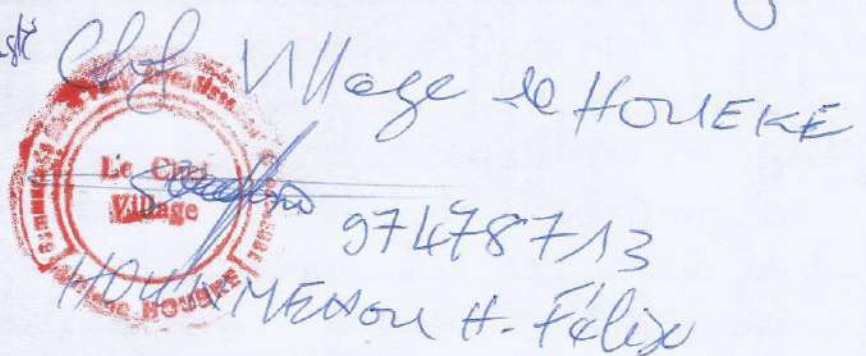 Chef Village de HOUEKE
Le Chef
Village
97478713
HOUNMENOU H. Félix